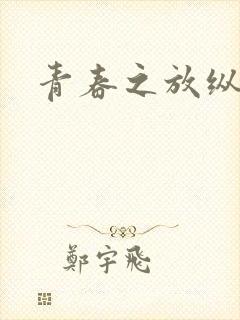 青春之放纵
鄭宇飛